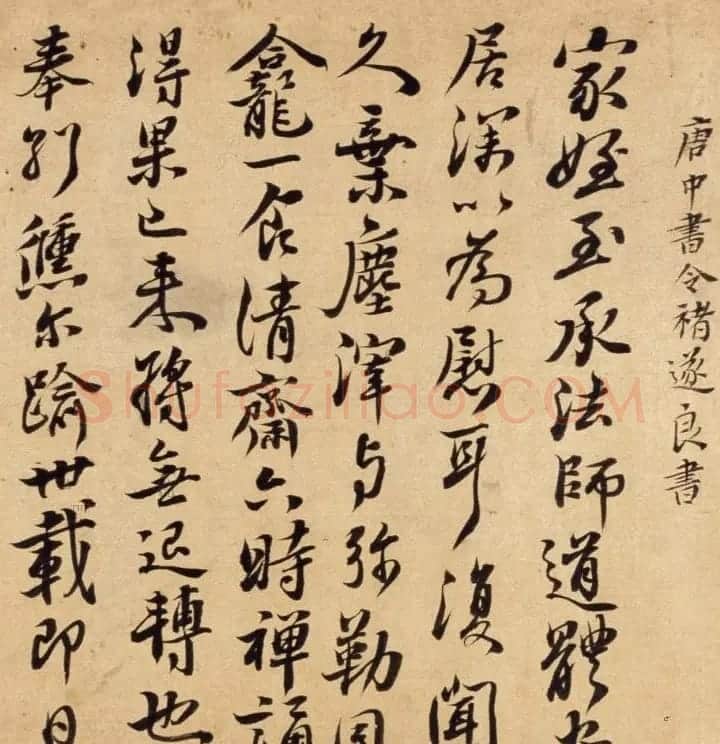 唐中書令褚遂良書
家姪至承法師道體安
居深以為慰耳復聞
久棄塵滓与弥勒同
龕一食清齋六時禪誦
得果已来將無退轉也
奉別儵尔踰卅載即日
Shufaziliao.COM